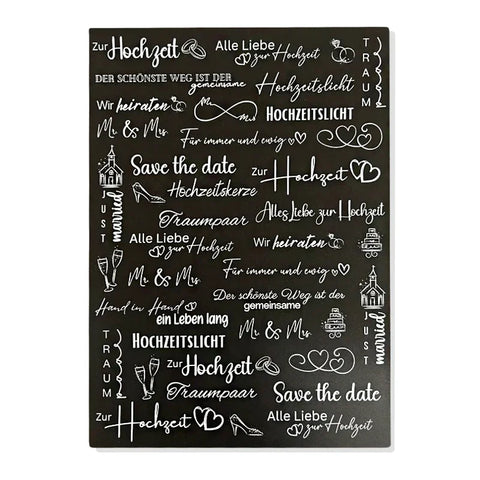 Zur Hochzeit
Alle Liebe
zur Hochzeit
TRAUM
DER SCHÖNSTE WEG IST DER
gemeinsame
Hochzeitslicht
Wir heiraten
Mr. Mrs.
HOCHZEITSLICHT
Mr. & Mrs.
Für immer und ewig
Save the date
Zur Hochzeit
Hochzeitskerze
JUST
married
Traumpaar
Alles Liebe zur Hochzeit
Alle Liebe
zur Hochzeit
Wir heiraten
Mr. & Mrs.
Für immer und ewig
Der schönste Weg ist der
gemeinsame
Hand in Hand
ein Leben lang
Mr. & Mrs.
JUST
married
TRAUM
HOCHZEITSLICHT
Zur Hochzeit
Traumpaar
Save the date
Zur Hochzeit
Alle Liebe
zur Hochzeit